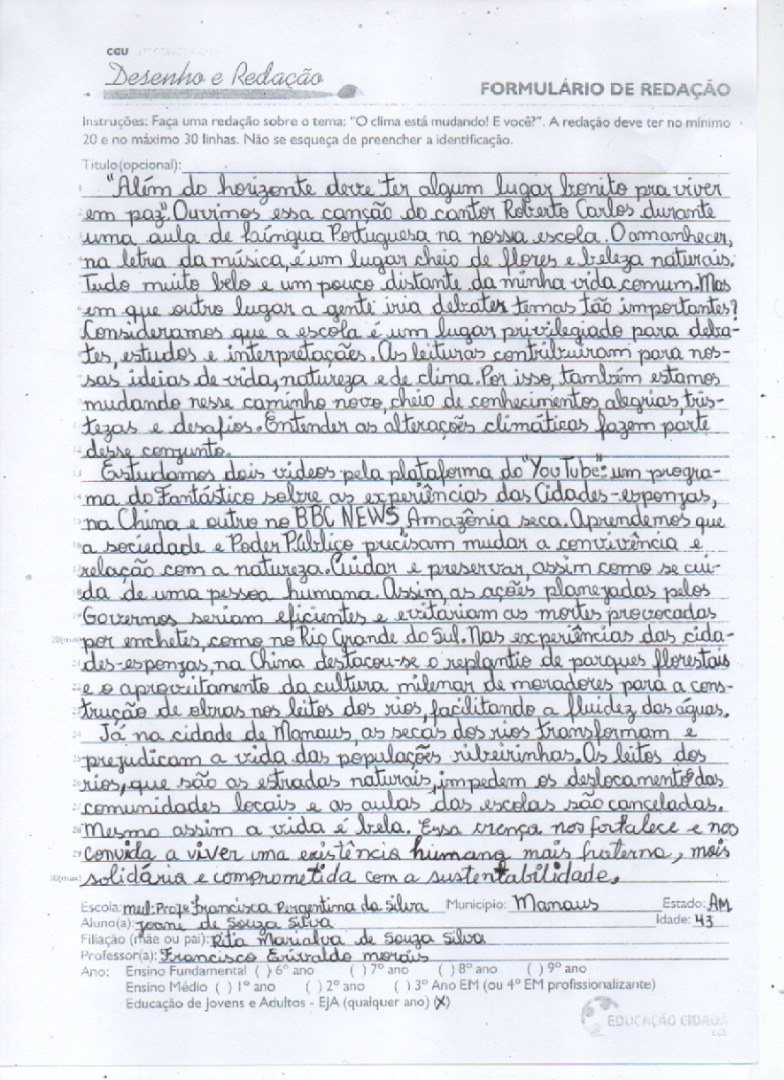 CGU
Desenho e Redação
FORMULÁRIO DE REDAÇÃO
Instruções: Faça uma redação sobre o tema: "O clima está mudando! E você?". A redação deve ter no mínimo
20 e no máximo 30 linhas. Não se esqueça de preencher a identificação.
Título(opcional):
"Além do horizonte deve ter algum lugar bonito pra viver
em paz". Ouvimos essa canção do cantor Roberto Carlos durante
uma aula de Laíngua Portuguesa na nossa escola. O amanhecer,
na letra da música, é um lugar cheio de flores e beleza naturais.
Tudo muito belo e um pouco distante da minha vida comum. Mas
em que outro lugar a gente iria debater temas tão importantes?
Consideramos que a escola é um lugar privilegiado para deba-
tes, estudos e interpretações. As leituras contribuiram para nos-
sas ideias de vida, natureza e de clima. Por isso, também estamos
mudando nesse caminho novo, cheio de conhecimentos alegrias, tris-
tezas e desafios. Entender as alterações climáticas fazem parte
desse conjunto.
Estudamos dois vídeos pela plataforma do "YouTube": um progra-
ma do Fantástico sobre as experiências das Cidades-esponjas,
na China e outro no BBC NEWS, Amazônia seca. Aprendemos que
a sociedade e Poder Público precisam mudar a convivência e
relação com a natureza. Cuidar e preservar, assim como se cui-
da de uma pessoa humana. Assim, as ações planejadas pelos
Governos seriam eficientes e evitariam as mortes provocadas
por enchetes, como no Rio Grande do Sul. Nas experiências das cida-
des-esponjas, na China destacou-se o replantio de parques florestais
e o aproveitamento da cultura milenar de moradores para a cons-
trução de obras nos leitos dos rios, facilitando a fluidez das águas.
Já na cidade de Manaus, as secas dos rios transformam e
prejudicam a vida das populações ribeirinhas. Os leitos dos
rios, que são as estradas naturais, impedem os deslocamentos das
comunidades locais e as aulas das escolas são canceladas.
Mesmo assim a vida é bela. Essa crença nos fortalece e nos
convida a viver uma existência humana mais fraterna, mais
solidária e comprometida com a sustentabilidade.
Escola: mul: Profª Francisca Pergentina da Silva Município: Manaus Estado: AM
Aluno(a): Joane de Souza Silva Idade: 43
Filiação (mãe ou pai): Rita Marialva de Souza Silva
Professor(a): Francisco Erivaldo morais
Ano: Ensino Fundamental ( ) 6º ano ( ) 7º ano ( ) 8º ano ( ) 9º ano
Ensino Médio ( ) 1º ano ( ) 2º ano ( ) 3º Ano EM (ou 4º EM profissionalizante)
Educação de Jovens e Adultos - EJA (qualquer ano) (X)
EDUCAÇÃO CIDADÃ